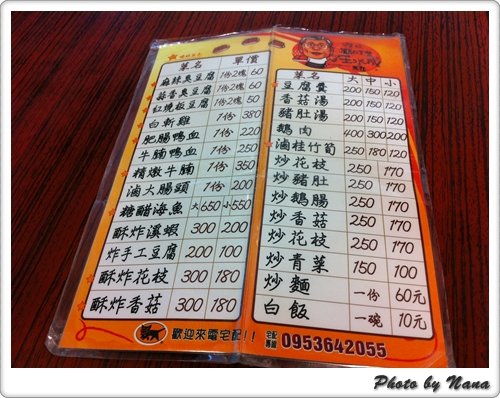 菜名 單價
麻辣臭豆腐 1份2塊 60
蒜香臭豆腐 1份2塊 60
紅燒板豆腐 1份2塊 50
白斬雞 1份 380
肥腸鴨血 1份 220
牛腩鴨血 1份 250
精燉牛腩 1份 350
滷大腸頭 1份 200
糖醋海魚 大650 小550
酥炸溪蝦 300 200
炸手工豆腐 200 100
酥炸花枝 300 180
酥炸香菇 300 180
歡迎來電宅配!!
菜名 大 中 小
豆腐羹 200 150 120
香菇湯 200 150 120
豬肚湯 200 150 120
鵝肉 400 300 200
滷桂竹筍 250 180 120
炒花枝 250 170
炒豬肚 250 170
炒鵝腸 250 170
炒香菇 250 170
炒花枝 250 170
炒青菜 150 100
炒麵 一份 60元
白飯 一碗 10元
宅配專線 0953642055
Photo by Nana